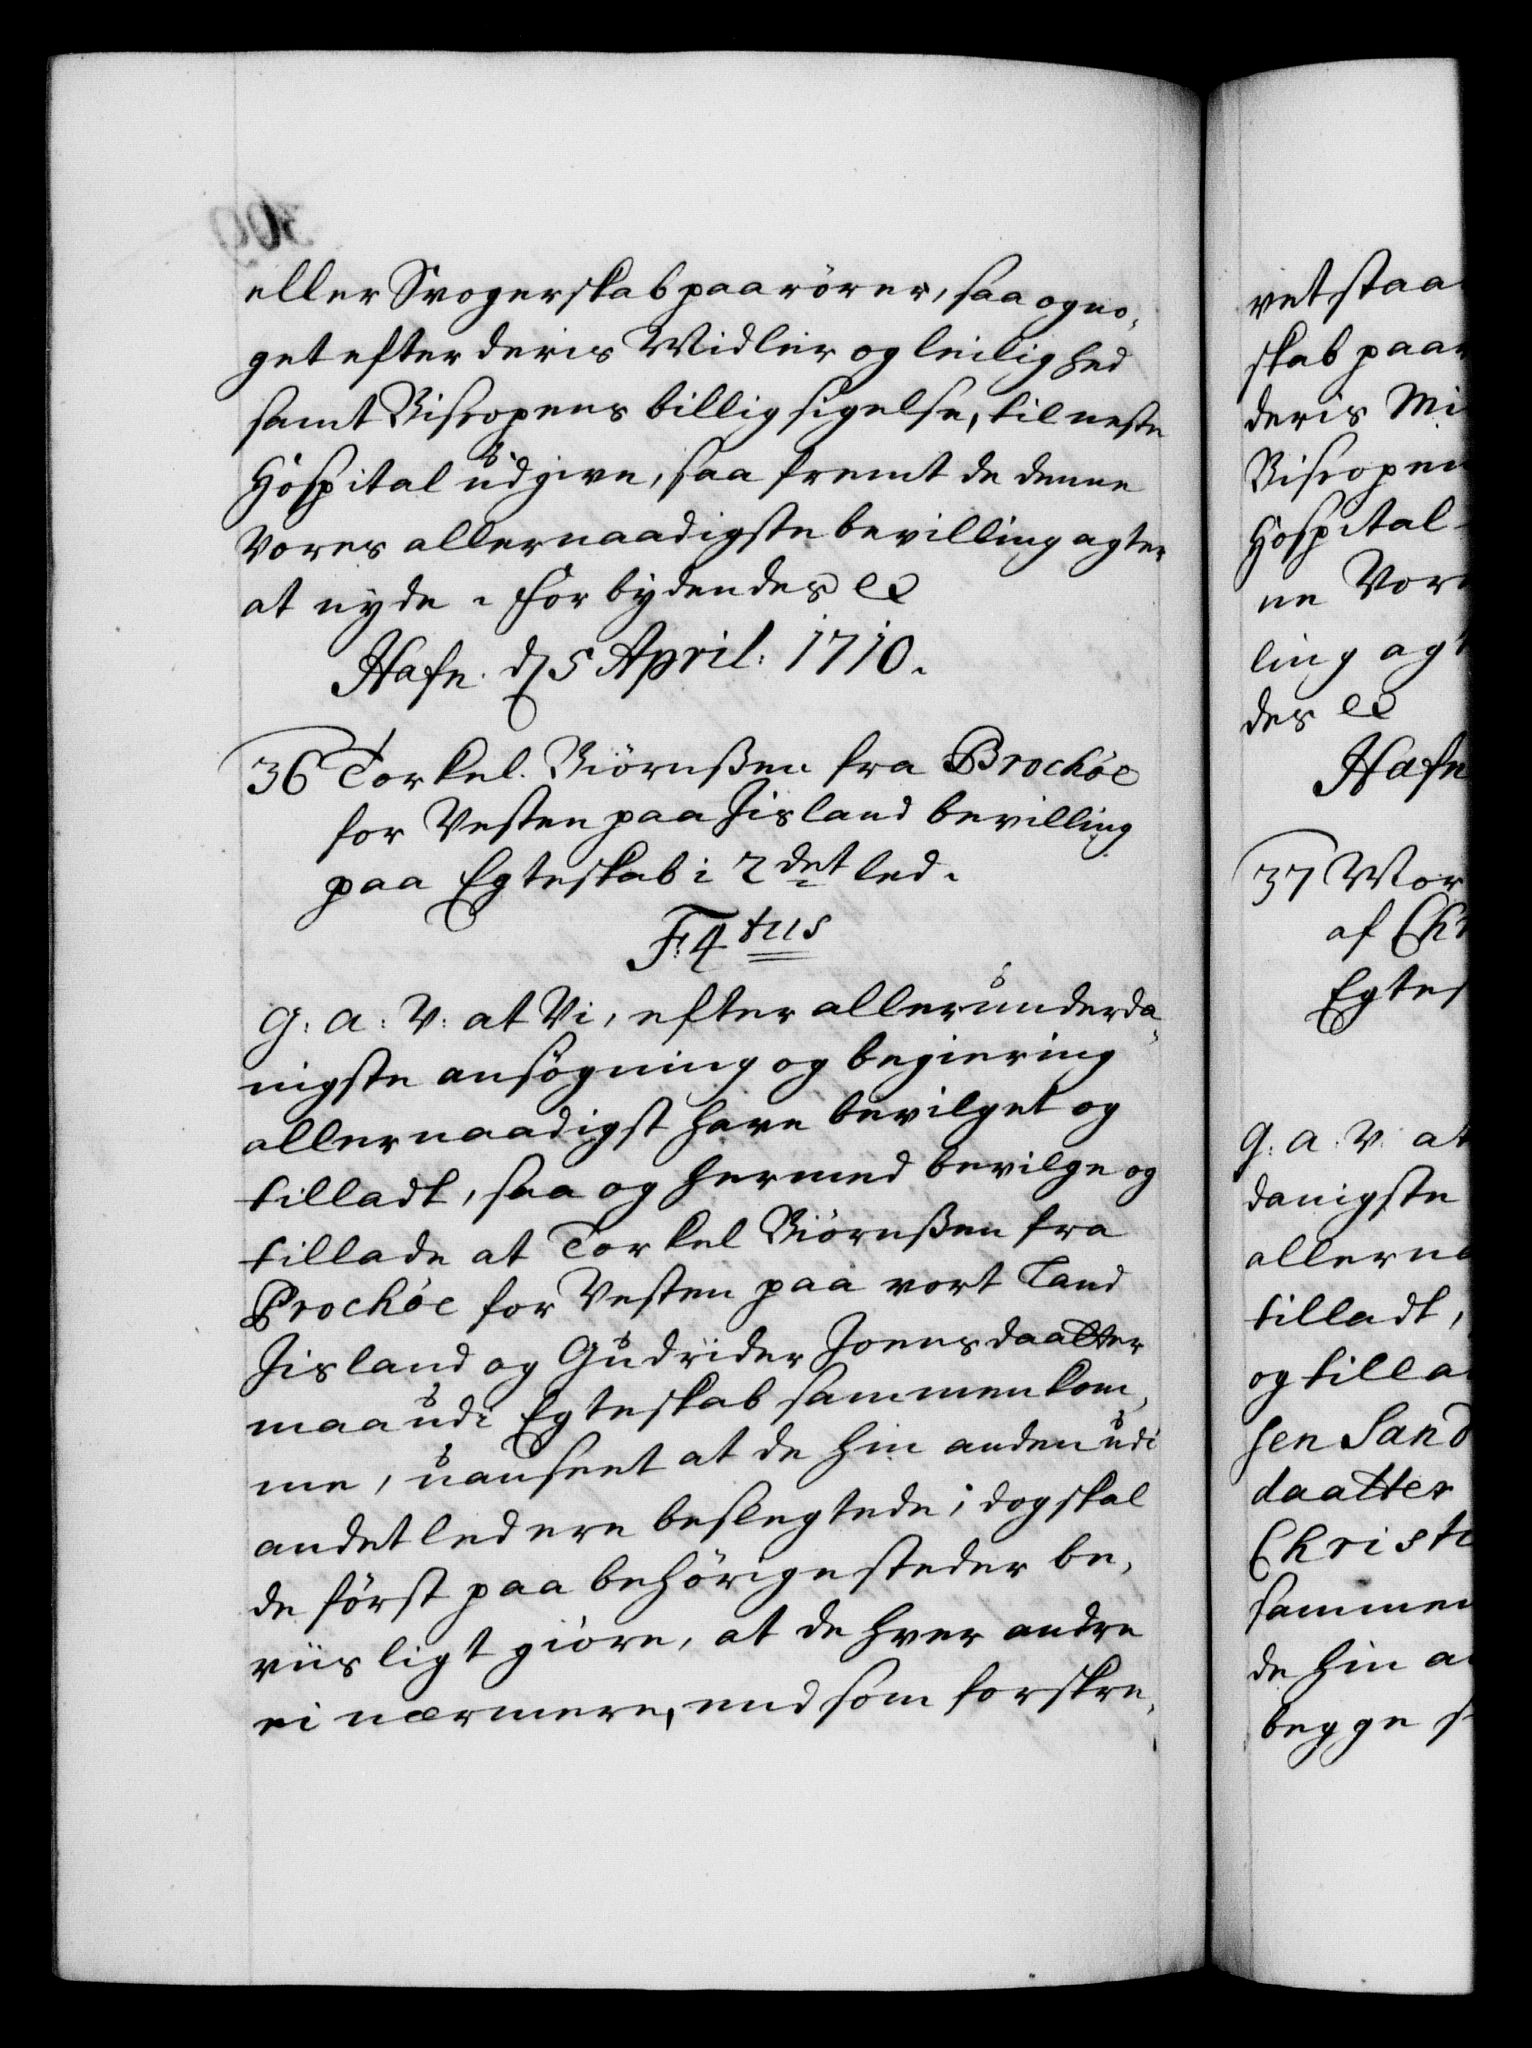 eller Svogerskab paarörer, saa og no-
get efter deris Midler og leilighed
samt Biscopens billig sigelse, til neste
Hospital udgive, saa fremt de denne
Vores allernaadigste bevilling agter
at nyde. Forbydendes etc
Hafn. d 5 April: 1710.
36 Torkel. Biörnßen fra Brochöe
for Vesten paa Jisland bevilling
paa Egteskab i 2det led.
F: 4tus
G: A: V: at Vi, efter allerunderda-
nigste ansögning og begiering
allernaadigst have bevilget og
tilladt, saa og hermed bevilge og
tillade at Torkel Biörnßen fra
Brochöe for Vesten paa vort Land
Jisland og Gudrider Joensdaatter
maa udi Egteskab sammenkom-
me, uanseet at de hin anden udi
andet led ere beslegtede; dog skal
de först paa behörige steder be-
viisligt giöre, at de hver andre
ei nærmere, end som forskre-
vet staa
skab paar
deris Mi
Biscopen
Hospital
ne Vor
ling agt
des etc
Hafn
37 Wor
af Chr
Egtes
G: A: V: at
danigste
allerna
tilladt,
og tilla
sen Sand
daatter
Christi
sammen
de hin a
begge s